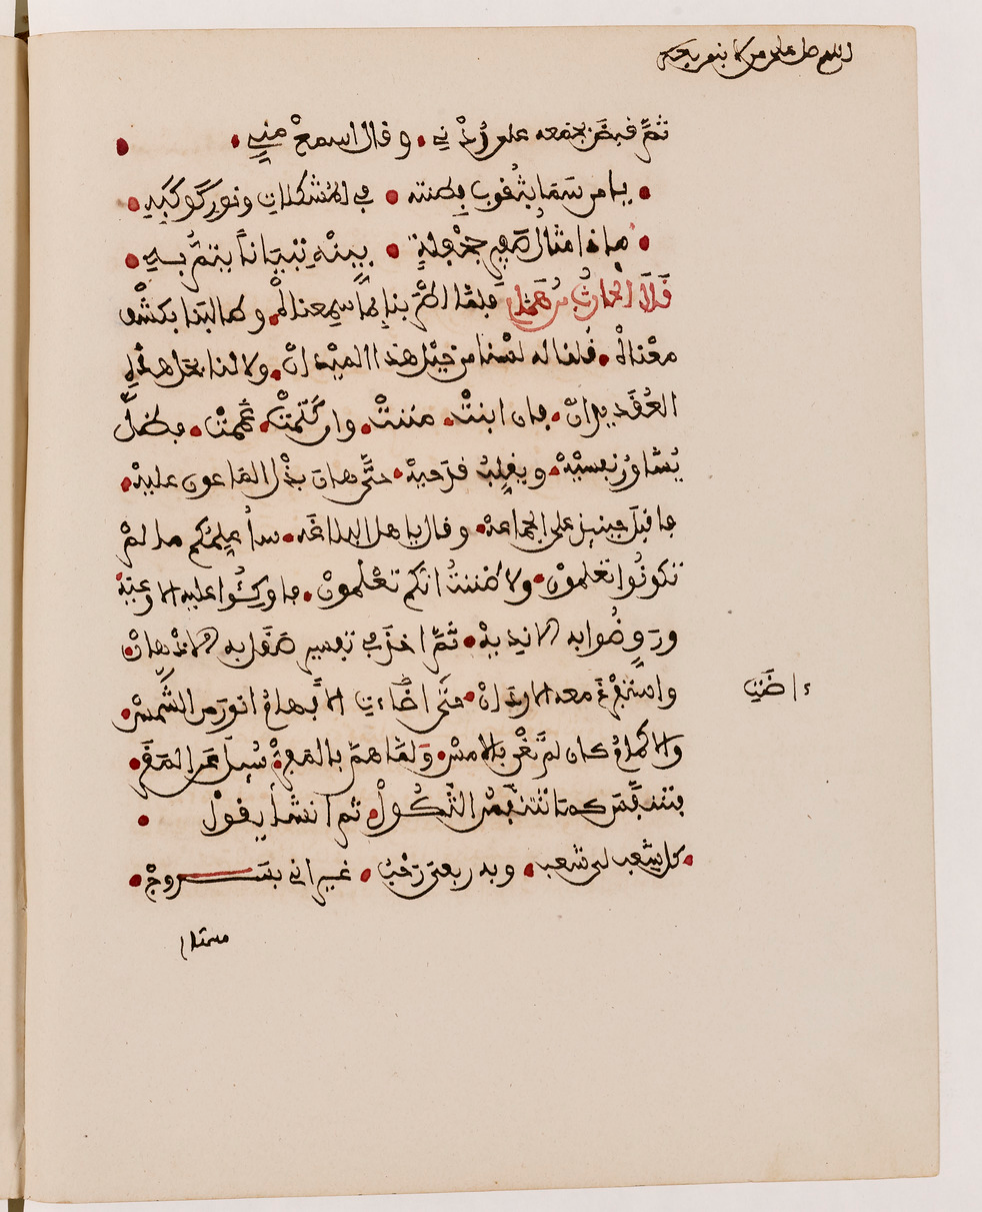 اللهم صل على من لا نبي بعده
ثمَّ قبض بجمعه على رُدْني • وقال اسمعْ مني •
• يا من سَمَا بثُقُوب فطنته • في المشكلات ونور كَوْكَبِهِ •
• هاذه امثال صفير جحفلةٍ • بينْهِ تبيَاناً يتمُّ بهِ •
قَالَ الْحَارثُ بنُ هَمَّام فلمّا اطْرَبنا بما سمِعناهْ • وطالبَنا بكشْف
معْناهْ • فلنا له لسْنا من خيْل هذا الميْدانْ • ولا لنا بحَل هذه
العُقَد يدانْ • فان ابنتْ • مننتْ • وان كَتَمتْ • غممتْ • فظلَّ
يُشاورُ نفسيْهْ • ويقلِبُ قدحيهْ • حتَّى هان بذْل الماعون عليهْ •
فاقبل حينئذ على الجماعهْ • وقال يا هل البلاغه • سأُعلِمُكم ما لمْ
تكونُوا تعلمونْ • ولا ظننتُ انكم تعْلمونْ • فاوكئُوا عليه الاوعيَهْ
وروِّضوا به الانديهْ • ثمَّ اخذ في تفسير صقل به الاذهانْ
واستفْرغ معه الاردانْ • حتَّى اضَاءت الافهامُ انور من الشَّمسْ •
والاكمامُ كان لم تَغْن بالامسْ • ولمّا همَّ بالمفرْ • سُئل عن المقرْ •
فتنفَّس كما تتنفس الثَّكُولْ • ثم انشا يقولْ •
• كل شعب لي شعب • وبه ربعي رَحْبُ • غير اني بسَروجْ •
مستهام
اضَت